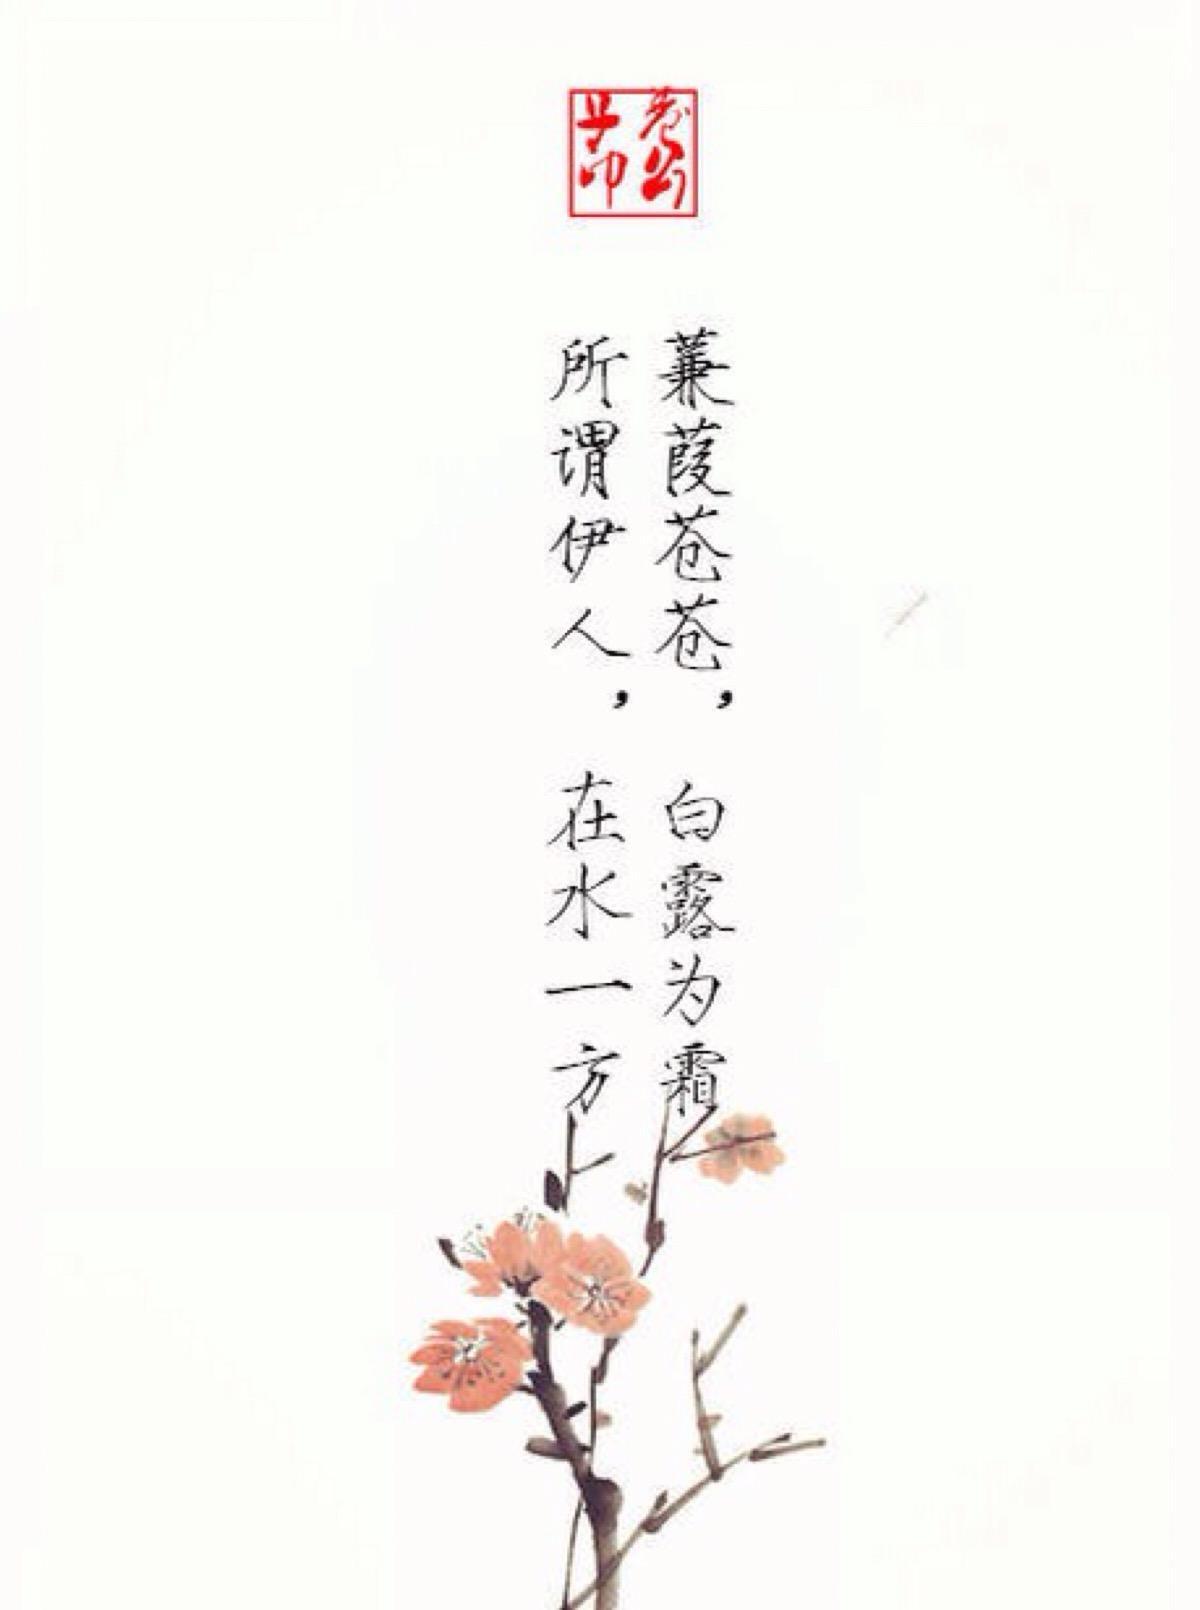 蒹葭苍苍，白露为霜
所谓伊人，在水一方